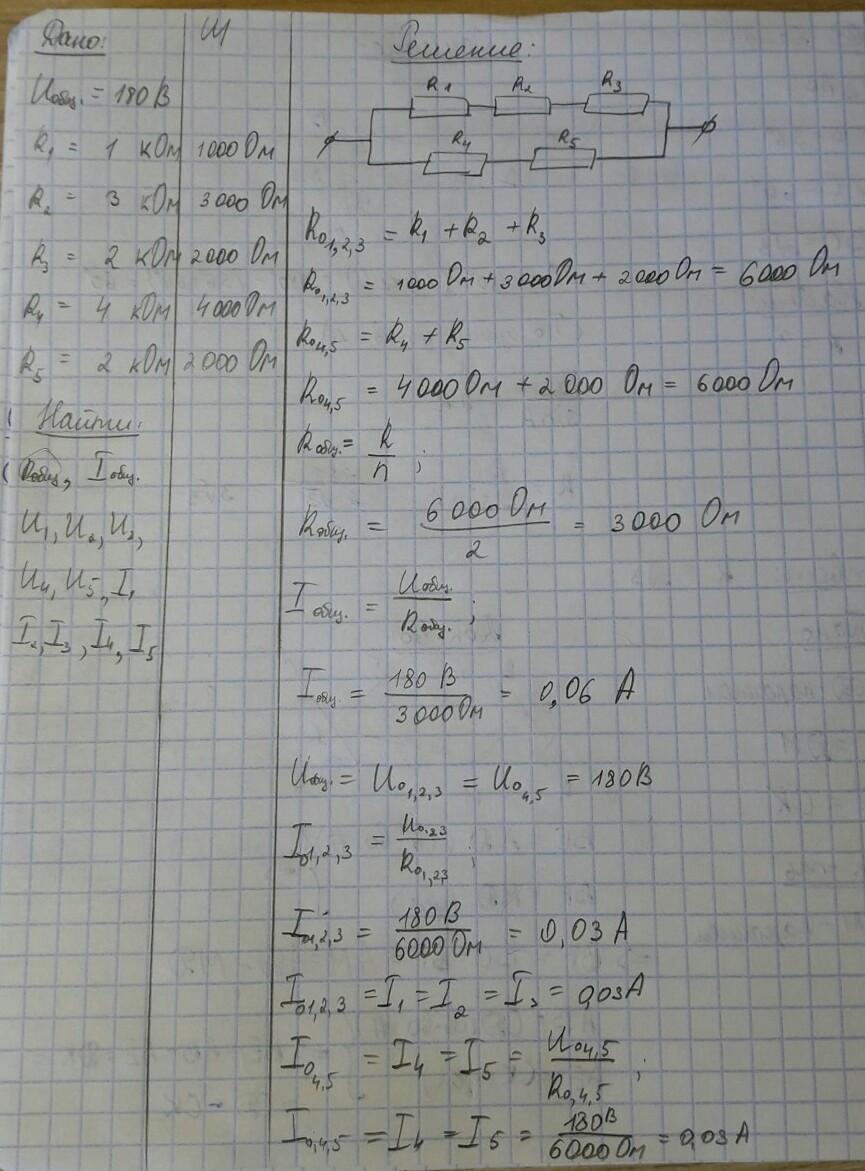 Дано:
СИ
Uобщ. = 180 В
R1 = 1 кОм 1000 Ом
R2 = 3 кОм 3000 Ом
R3 = 2 кОм 2000 Ом
R4 = 4 кОм 4000 Ом
R5 = 2 кОм 2000 Ом
Найти:
Rобщ, Iобщ.
U1, U2, U3,
U4, U5, I1
I2, I3, I4, I5
Решение:
R1 R2 R3
R4 R5
R01,2,3 = R1 + R2 + R3
R01,2,3 = 1000 Ом + 3000 Ом + 2000 Ом = 6000 Ом
R04,5 = R4 + R5
R04,5 = 4000 Ом + 2000 Ом = 6000 Ом
Rобщ. = R/n ;
Rобщ. = 6000 Ом/2 = 3000 Ом
Iобщ. = Uобщ./Rобщ. ;
Iобщ. = 180 В/3000 Ом = 0,06 А
Uобщ. = U01,2,3 = U04,5 = 180 В
I01,2,3 = U0,23/R01,23 ;
I01,2,3 = 180 В/6000 Ом = 0,03 А
I01,2,3 = I1 = I2 = I3 = 0,03 А
I04,5 = I4 = I5 = U04,5/R0,4,5 ;
I0,4,5 = I4 = I5 = 180 В/6000 Ом = 0,03 А